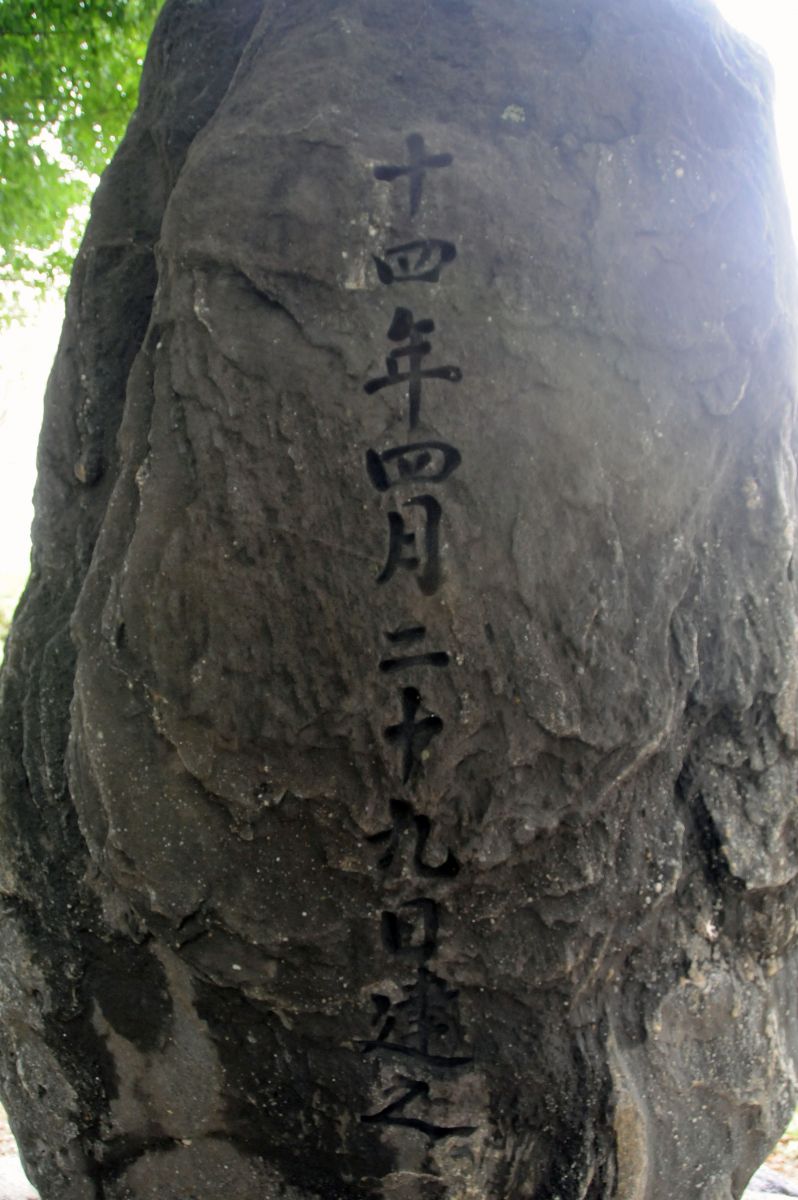 十四年四月二十九日建之